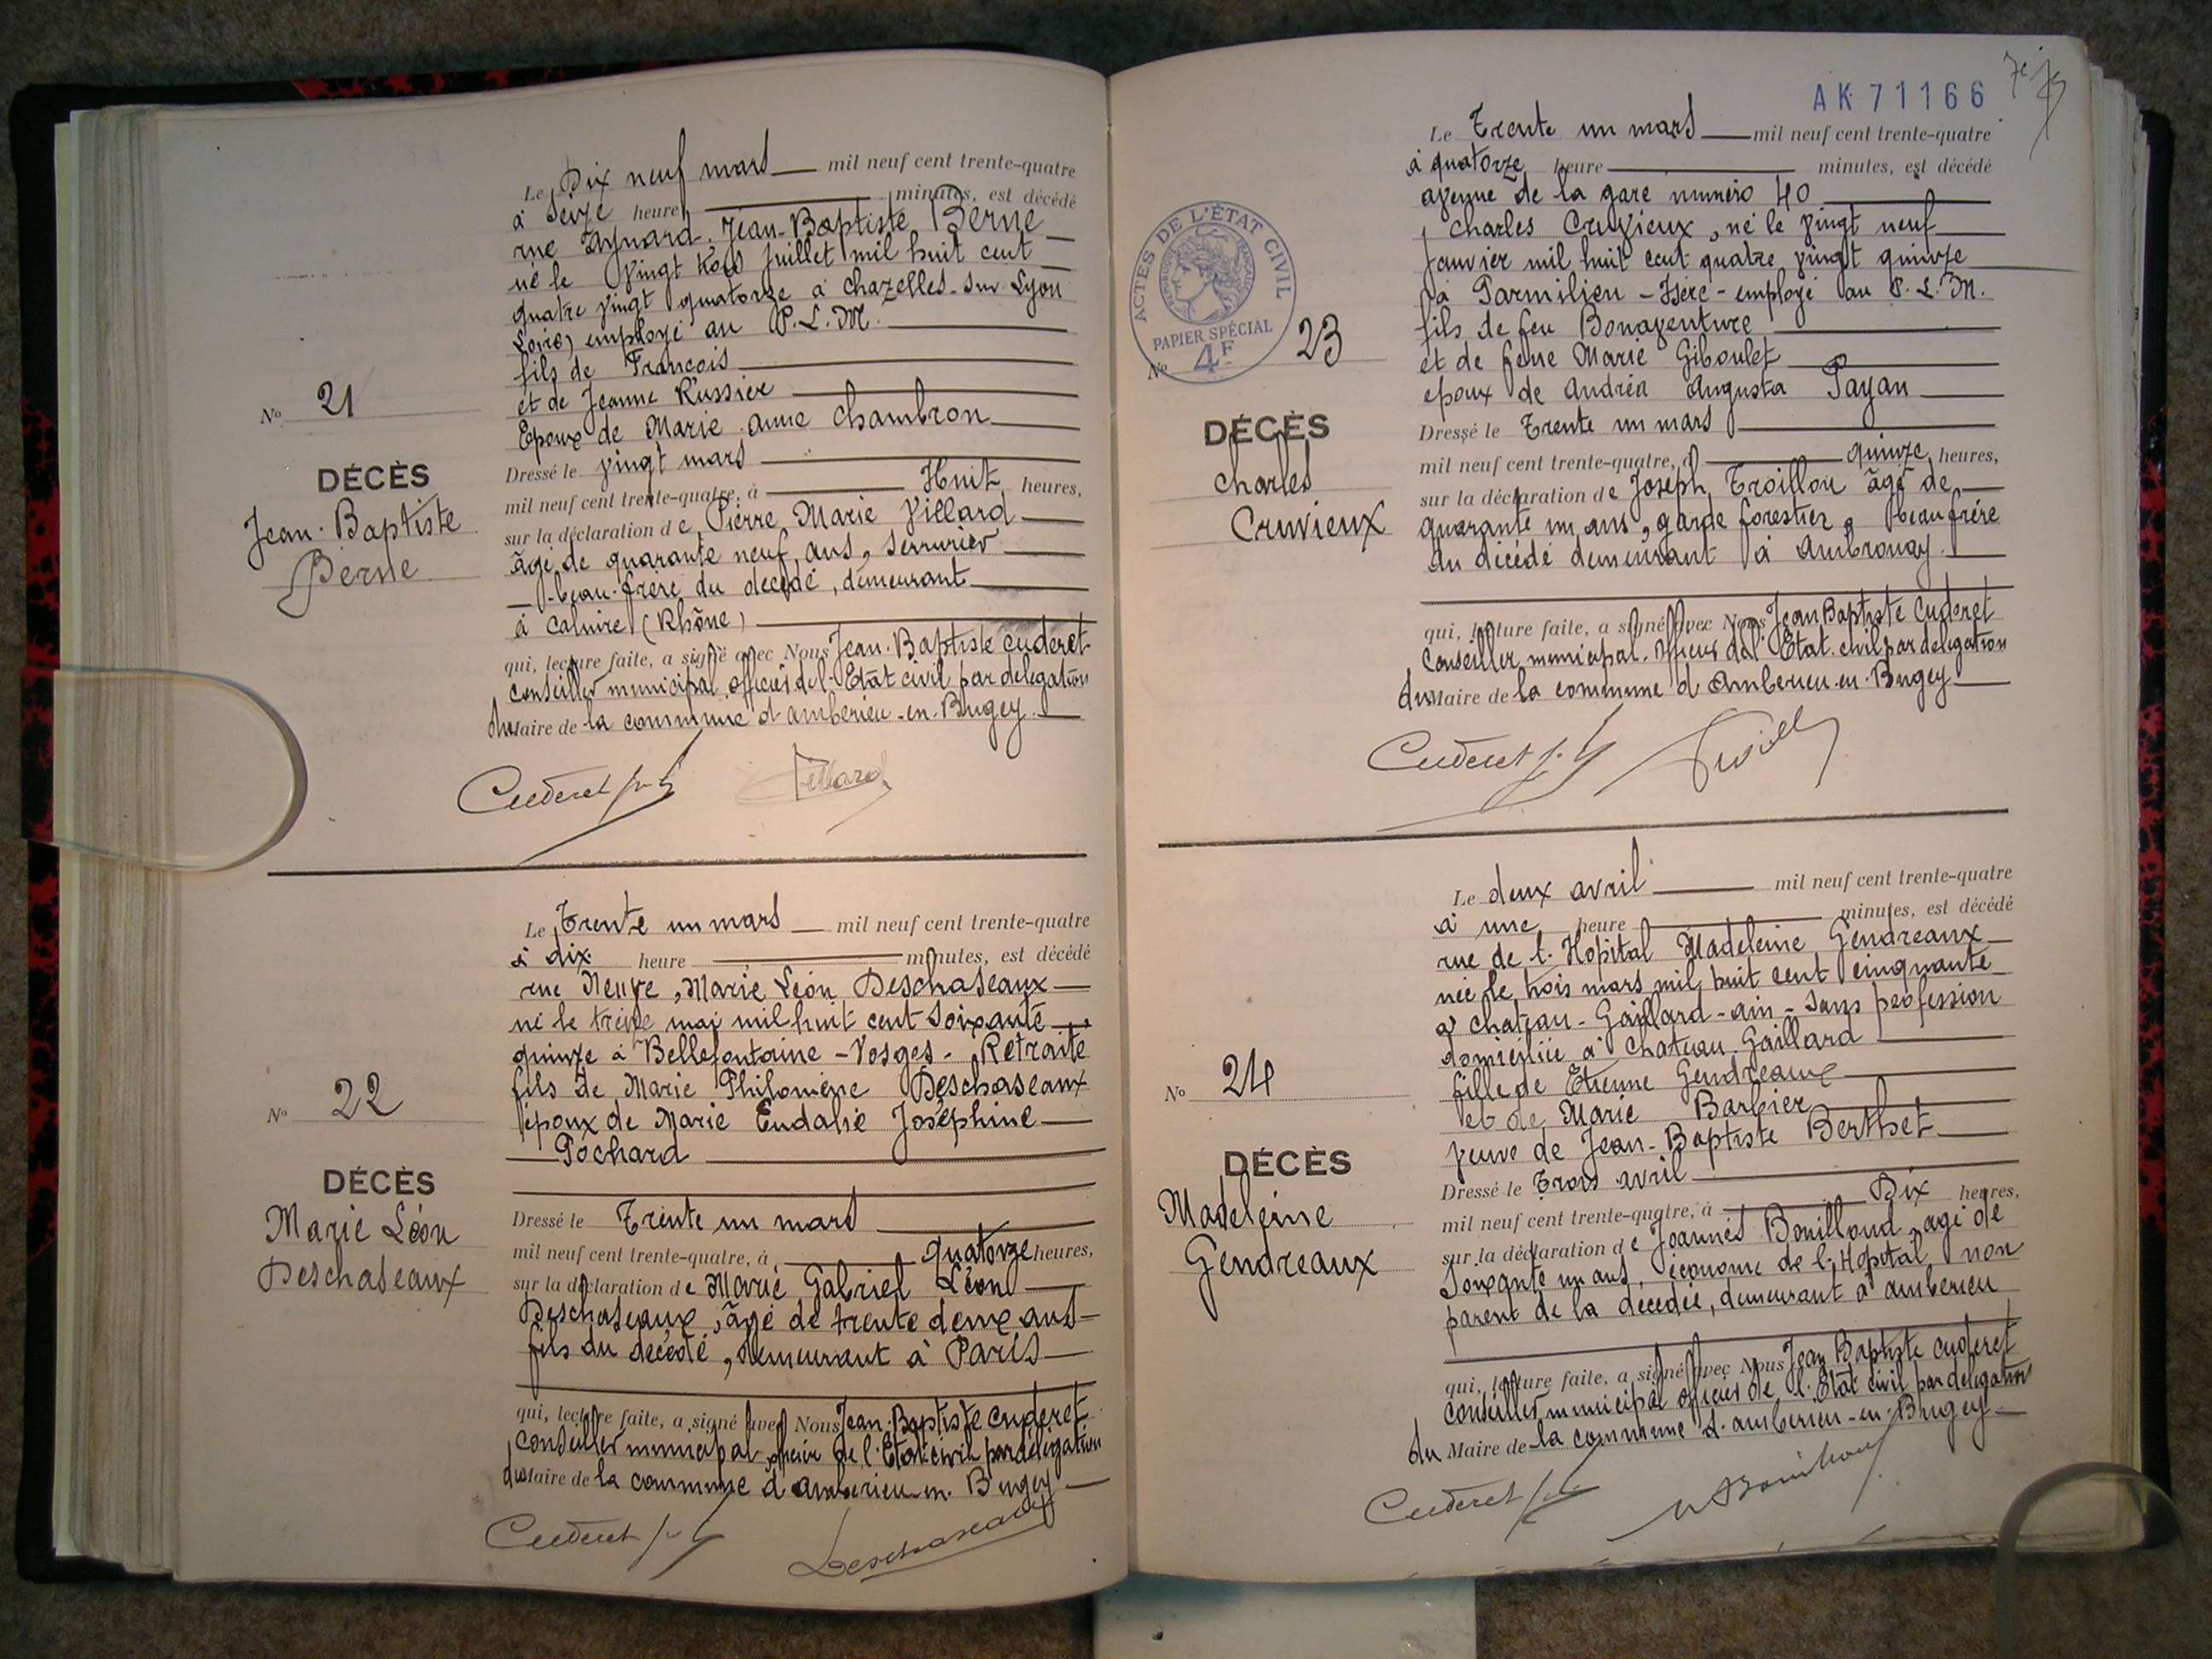 Le Dix neuf mars mil neuf cent trente-quatre
à Seize heure minutes, est décédé
rue Aynard. Jean-Baptiste Berne
né le vingt trois juillet mil huit cent
quatre vingt quatorze à Chazelles-sur Lyon
Loire) employé au P.L.M.
fils de François
et de Jeanne Russier
Epoux de Marie Anne Chambron
Dressé le vingt mars
mil neuf cent trente-quatre, à Huit heures,
sur la déclaration de Pierre Marie Villard
âgé de quarante neuf ans, Serrurier
beau-frère du décédé, demeurant
à Caluire (Rhône)
qui, lecture faite, a signé avec Nous Jean-Baptiste Cuderet
Conseiller municipal officier de l'Etat civil par délégation
du Maire de la commune d'Ambérieu-en-Bugey
Cuderet Villard
No 21
DÉCÈS
Jean-Baptiste
Berne
Le Trente un mars mil neuf cent trente-quatre
à dix heure minutes, est décédé
rue Neuve, Marie Léon Deschaseaux
né le treize mai mil huit cent soixante
quinze à Bellefontaine - Vosges - Retraité
fils de Marie Philomène Deschaseaux
époux de Marie Eudalie Joséphine
Pochard
Dressé le Trente un mars
mil neuf cent trente-quatre, à quatorze heures,
sur la déclaration de Marie Gabriel Léon
Deschaseaux, âgé de trente deux ans
fils du décédé, demeurant à Paris
qui, lecture faite, a signé avec Nous Jean-Baptiste Cuderet
Conseiller municipal officier de l'Etat civil par délégation
du Maire de la commune d'Ambérieu-en-Bugey
Cuderet Deschaseaux
No 22
DÉCÈS
Marie Léon
Deschaseaux
AK 71166
Le Trente un mars mil neuf cent trente-quatre
à quatorze heure minutes, est décédé
avenue de la gare numéro 40
Charles Cruvieux, né le vingt neuf
Janvier mil huit cent quatre vingt quinze
à Parmilieu - Isère - employé au P.L.M.
fils de feu Bonaventure
et de feue Marie Giboulet
epoux de Andréa Augusta Payan
Dressé le Trente un mars
mil neuf cent trente-quatre, à quinze heures,
sur la déclaration de Joseph Troillou âgé de
quarante un ans, garde forestier, beau frère
du décédé demeurant à Ambronay
qui, lecture faite, a signé avec Nous Jean Baptiste Cuderet
Conseiller municipal. officier de l'Etat civil par délégation
du Maire de la commune d'Ambérieu-en-Bugey
Cuderet
ACTES DE L'ÉTAT CIVIL
PAPIER SPÉCIAL
4F
No 23
DÉCÈS
Charles
Cruvieux
Le deux avril mil neuf cent trente-quatre
à une heure minutes, est décédé
rue de l'Hopital Madeleine Gendreaux
née le trois mars mil huit cent cinquante
à Chateau-Gaillard - Ain - sans profession
domiciliée à Chateau Gaillard
fille de Etienne Gendreaux
et de Marie Barbier
veuve de Jean-Baptiste Berthet
Dressé le Trois avril
mil neuf cent trente-quatre, à Dix heures,
sur la déclaration de Joannès Bouilloud, agé de
soixante un ans, économe de l'Hopital non
parent de la décédée, demeurant à Ambérieu
qui, lecture faite, a signé avec Nous Jean Baptiste Cuderet
Conseiller municipal officier de l'Etat civil par délégation
du Maire de la commune d'Ambérieu-en-Bugey
Cuderet
No 24
DÉCÈS
Madeleine
Gendreaux